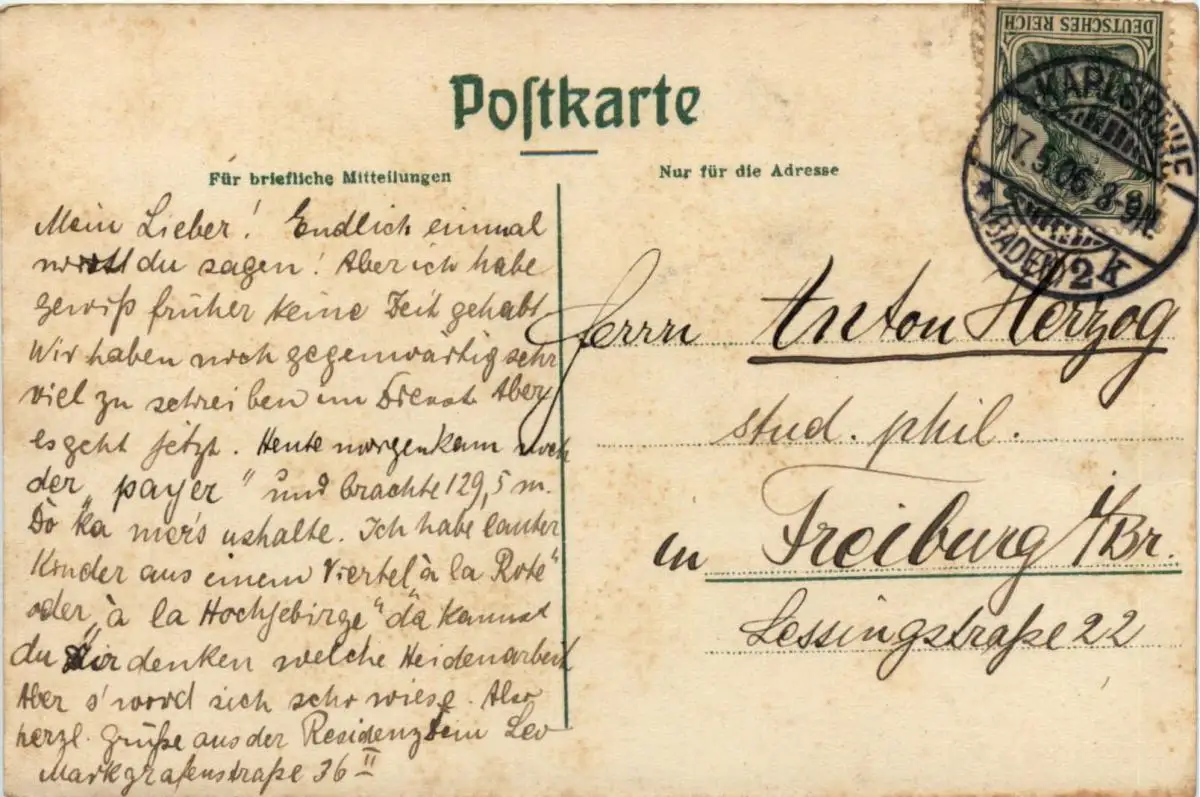 Postkarte
Für briefliche Mitteilungen
Nur für die Adresse
DEUTSCHES REICH
KARLSRUHE
17.5.06. 8-9N.
* (BADEN) 2k
Mein Lieber! Endlich einmal
wirst du sagen! Aber ich habe
gewiß früher keine Zeit gehabt
Wir haben noch gegenwärtig sehr
viel zu schreiben im Dienst. Aber
es geht jetzt. Heute morgen kam noch
der „payer" und brachte 129,5 m.
Do ka mer's ushalte. Ich habe lauter
Kinder aus einem Viertel „à la Rote"
oder „à la Hochgebirge" da kannst
du dir denken welche Heidenarbeit
Aber s' word sich scho wiese. Also
herzl. Grüße aus der Residenz Dein Leo
Markgrafenstraße 36 II
Herrn Anton Herzog
stud. phil.
in Freiburg i/Br.
Lessingstraße 22